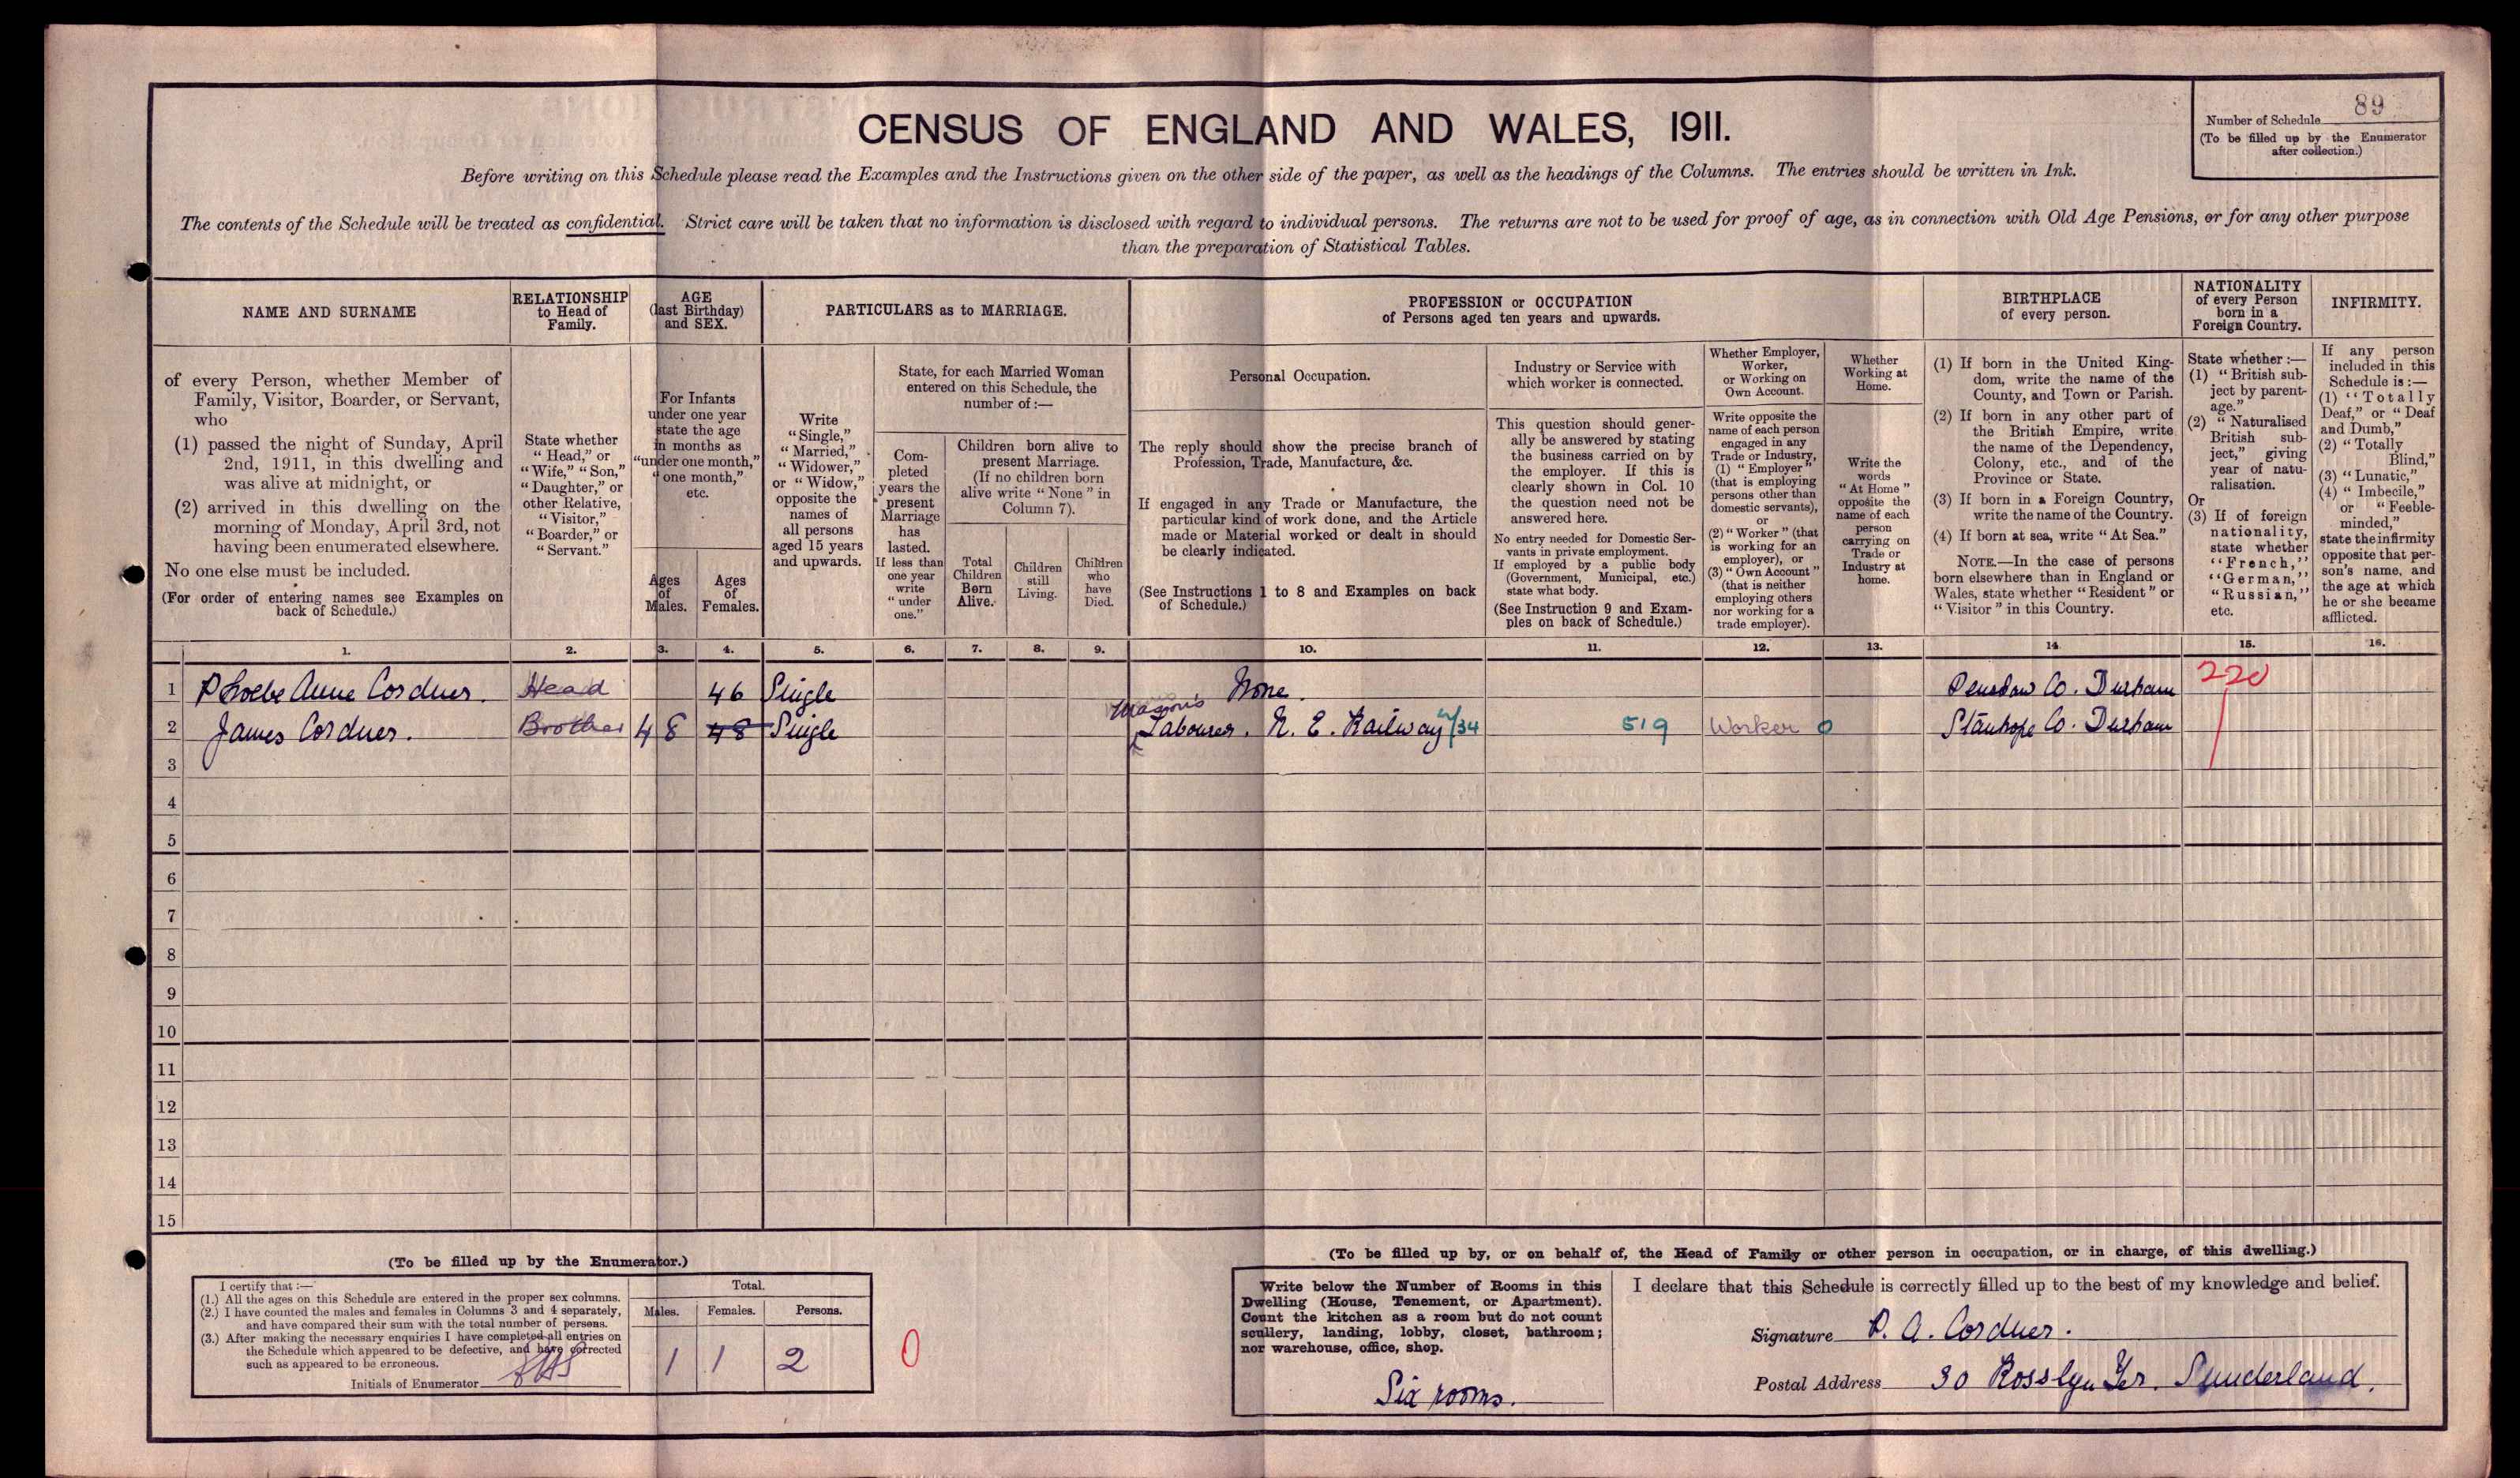 CENSUS OF ENGLAND AND WALES, 1911.
Number of Schedule 89
(To be filled up by the Enumerator
after collection.)
Before writing on this Schedule please read the Examples and the Instructions given on the other side of the paper, as well as the headings of the Columns. The entries should be written in Ink.
The contents of the Schedule will be treated as confidential. Strict care will be taken that no information is disclosed with regard to individual persons. The returns are not to be used for proof of age, as in connection with Old Age Pensions, or for any other purpose
than the preparation of Statistical Tables.
NAME AND SURNAME
of every Person, whether Member of
Family, Visitor, Boarder, or Servant,
who
(1) passed the night of Sunday, April
2nd, 1911, in this dwelling and
was alive at midnight, or
(2) arrived in this dwelling on the
morning of Monday, April 3rd, not
having been enumerated elsewhere.
No one else must be included.
(For order of entering names see Examples on
back of Schedule.)
RELATIONSHIP
to Head of
Family.
State whether
"Head," or
"Wife," "Son,"
"Daughter," or
other Relative,
"Visitor,"
"Boarder," or
"Servant."
AGE
(last Birthday)
and SEX.
For Infants
under one year
state the age
in months as
"under one month,"
"one month,"
etc.
Ages
of
Males.
Ages
of
Females.
PARTICULARS as to MARRIAGE.
Write
"Single,"
"Married,"
"Widower,"
or "Widow,"
opposite the
names of
all persons
aged 15 years
and upwards.
State, for each Married Woman
entered on this Schedule, the
number of:—
Com-
pleted
years the
present
Marriage
has
lasted.
If less than
one year
write
"under
one."
Children born alive to
present Marriage.
(If no children born
alive write "None" in
Column 7).
Total
Children
Born
Alive.
Children
still
Living.
Children
who
have
Died.
PROFESSION or OCCUPATION
of Persons aged ten years and upwards.
Personal Occupation.
The reply should show the precise branch of
Profession, Trade, Manufacture, &c.
If engaged in any Trade or Manufacture, the
particular kind of work done, and the Article
made or Material worked or dealt in should
be clearly indicated.
(See Instructions 1 to 8 and Examples on back
of Schedule.)
Industry or Service with
which worker is connected.
This question should gener-
ally be answered by stating
the business carried on by
the employer. If this is
clearly shown in Col. 10
the question need not be
answered here.
No entry needed for Domestic Ser-
vants in private employment.
If employed by a public body
(Government, Municipal, etc.)
state what body.
(See Instruction 9 and Exam-
ples on back of Schedule.)
Whether Employer,
Worker,
or Working on
Own Account.
Write opposite the
name of each person
engaged in any
Trade or Industry,
(1) "Employer"
(that is employing
persons other than
domestic servants),
or
(2) "Worker" (that
is working for an
employer), or
(3) "Own Account"
(that is neither
employing others
nor working for a
trade employer).
Whether
Working at
Home.
Write the
words
"At Home"
opposite the
name of each
person
carrying on
Trade or
Industry at
home.
BIRTHPLACE
of every person.
(1) If born in the United King-
dom, write the name of the
County, and Town or Parish.
(2) If born in any other part of
the British Empire, write
the name of the Dependency,
Colony, etc., and of the
Province or State.
(3) If born in a Foreign Country,
write the name of the Country.
(4) If born at sea, write "At Sea."
NOTE.—In the case of persons
born elsewhere than in England or
Wales, state whether "Resident" or
"Visitor" in this Country.
NATIONALITY
of every Person
born in a
Foreign Country.
State whether:—
(1) "British sub-
ject by parent-
age."
(2) "Naturalised
British sub-
ject," giving
year of natu-
ralisation.
Or
(3) If of foreign
nationality,
state whether
"French,"
"German,"
"Russian,"
etc.
INFIRMITY.
If any person
included in this
Schedule is:—
(1) "Totally
Deaf," or "Deaf
and Dumb,"
(2) "Totally
Blind,"
(3) "Lunatic,"
(4) "Imbecile,"
or "Feeble-
minded,"
state the infirmity
opposite that per-
son's name, and
the age at which
he or she became
afflicted.
1. 2. 3. 4. 5. 6. 7. 8. 9. 10. 11. 12. 13. 14. 15. 16.
1 Phoebe Anne Cordner. Head 46 Single None. Penshaw Co. Durham 220
Mason's
2 James Cordner. Brother 48 48 Single Labourer. N. E. Railway /34 519 Worker 0 Stanhope Co. Durham
3
4
5
6
7
8
9
10
11
12
13
14
15
(To be filled up by the Enumerator.)
I certify that:—
(1.) All the ages on this Schedule are entered in the proper sex columns.
(2.) I have counted the males and females in Columns 3 and 4 separately,
and have compared their sum with the total number of persons.
(3.) After making the necessary enquiries I have completed all entries on
the Schedule which appeared to be defective, and have corrected
such as appeared to be erroneous.
Initials of Enumerator
Total.
Males. Females. Persons.
1 1 2
0
(To be filled up by, or on behalf of, the Head of Family or other person in occupation, or in charge, of this dwelling.)
Write below the Number of Rooms in this
Dwelling (House, Tenement, or Apartment).
Count the kitchen as a room but do not count
scullery, landing, lobby, closet, bathroom;
nor warehouse, office, shop.
Six rooms.
I declare that this Schedule is correctly filled up to the best of my knowledge and belief.
Signature P. A. Cordner.
Postal Address 30 Rosslyn Ter. Sunderland.